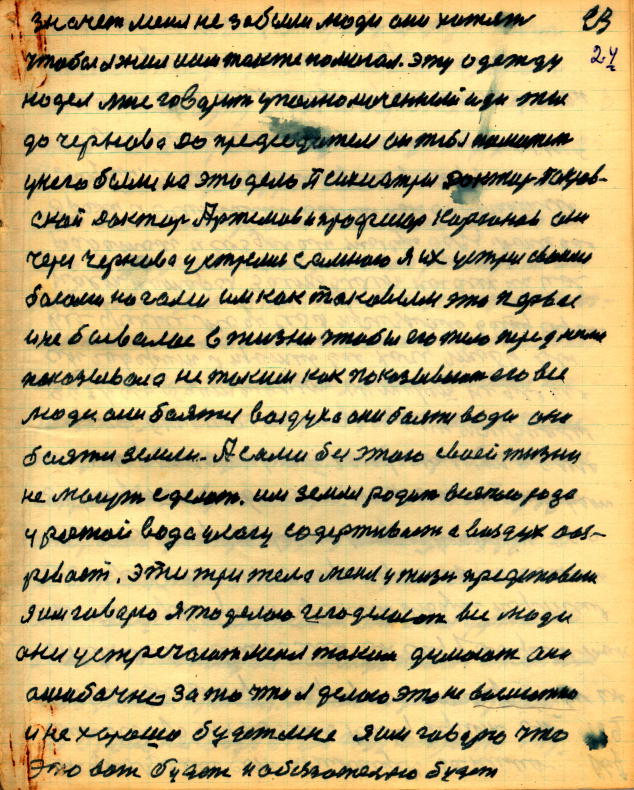 23
24
значет меня не забыли люди они хотят
чтобы я жил и им также помогал. эту одежду
надел мне говарит уполномоченный иди ты
до чернова до председателя он тебя
у него были на это дело Психиатри доктор Покров-
ской доктор Артемов и профессор они
через чернова устрелис самною я их устрел своими
босоми ногами им как таковыми это первое
и не бывалое в жизни чтобы его тело перед ними
показывала не таким как показывает его все
люди они баятся воздуха они баятся воды они
баятся земли. А сами без этого своей жизни
не могут сделат. им земля родит всячию рода
вода улагу содерживаит а воздух
эти три тела меня у жизн представели
я им говарю я то делаю чего делают все люди
они устречают меня таким думают они
ошибачно за то что я делаю это не
и не хорошо будет мне я им говарю что
это вот будет и обезателно будет